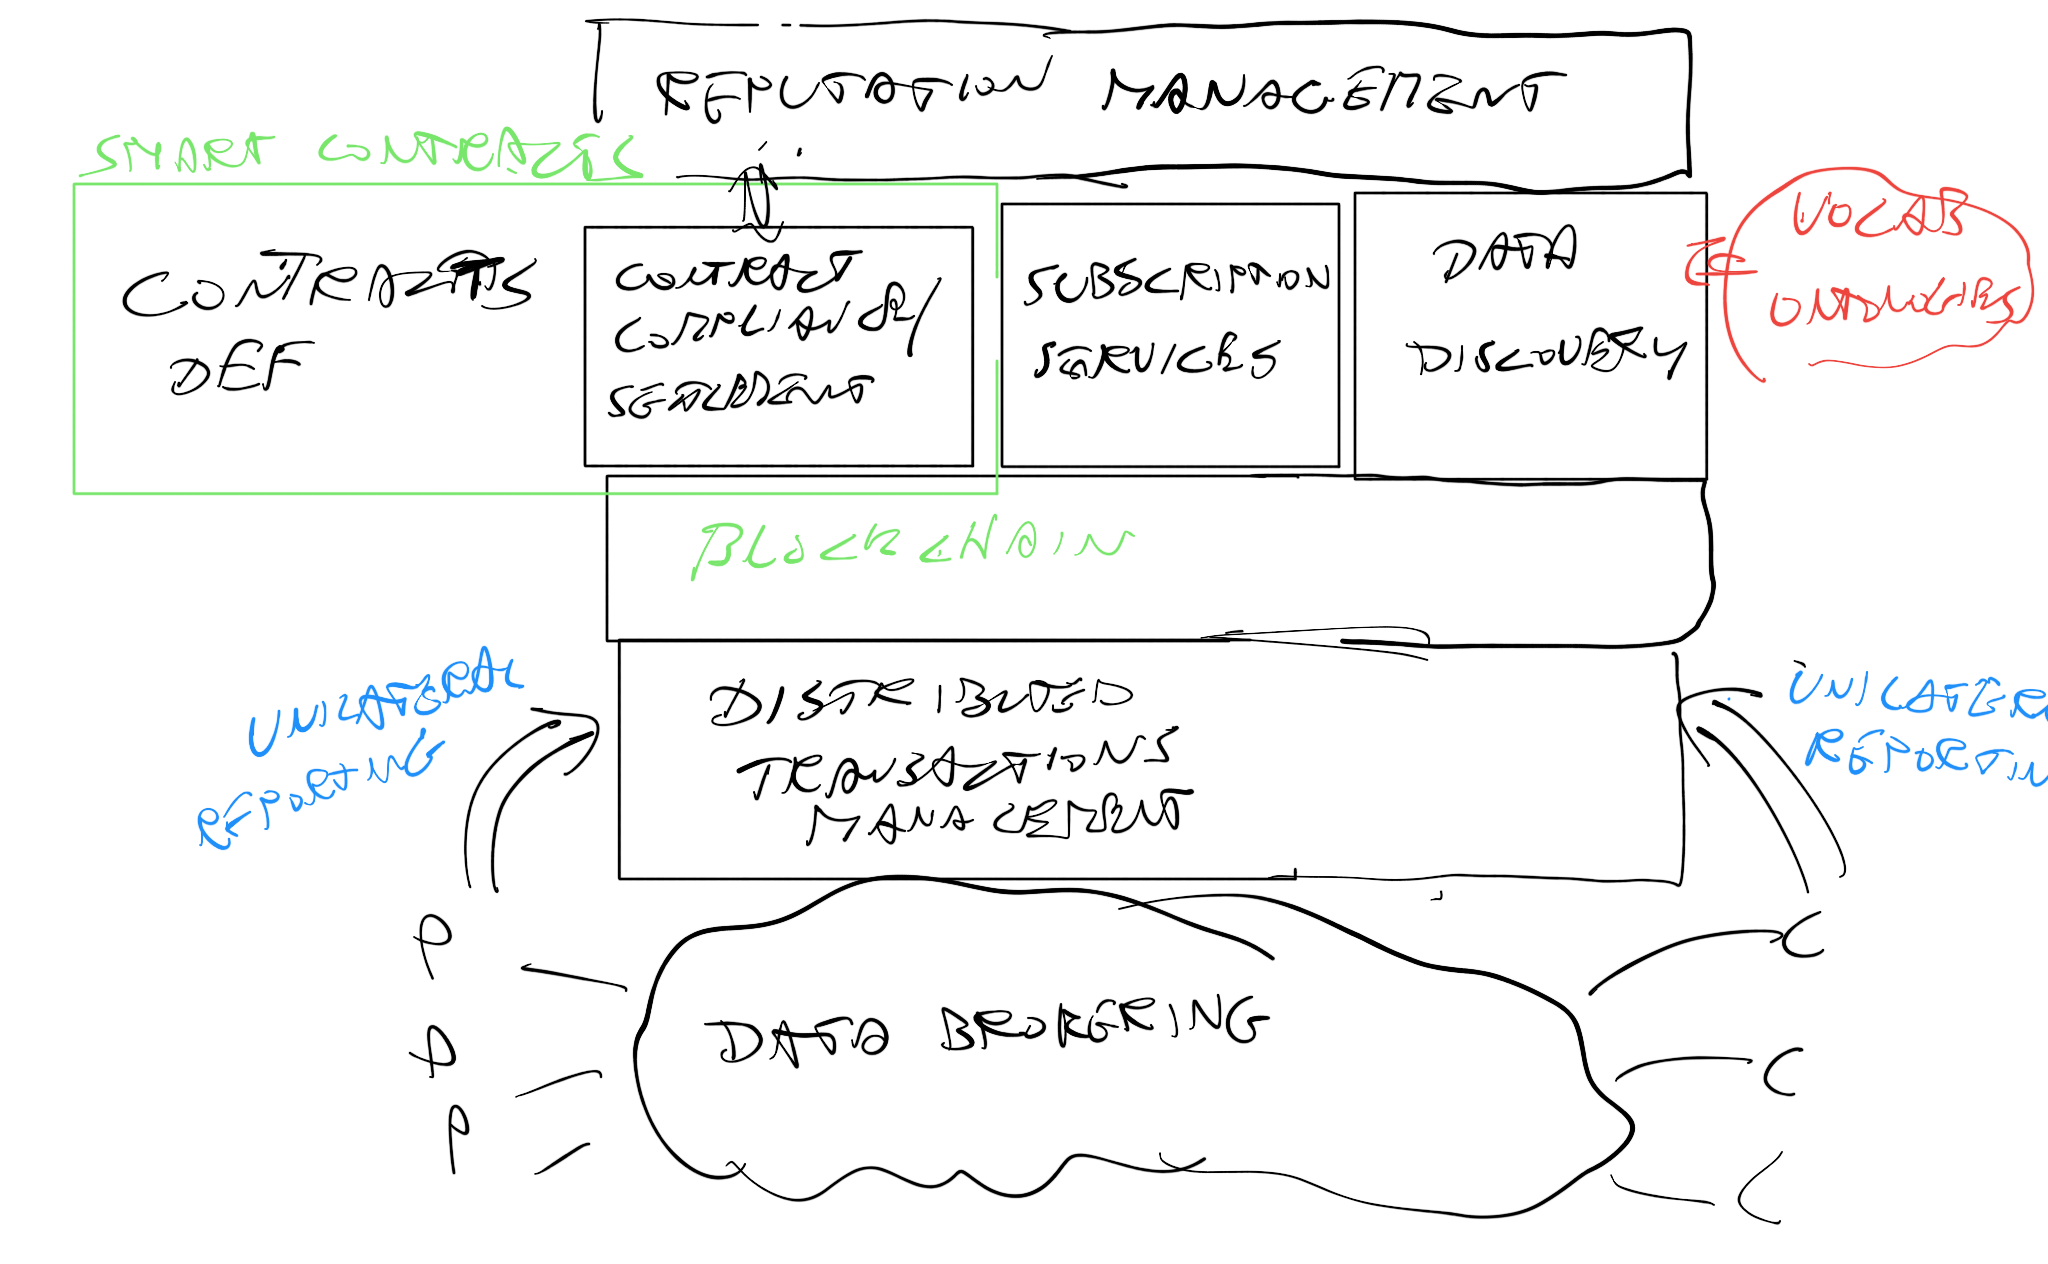 REPUTATION MANAGEMENT
SMART CONTRACTS
CONTRACTS
DEF
CONTRACT
COMPLIANCE/
SETTLEMENT
SUBSCRIPTION
SERVICES
DATA
DISCOVERY
VOCAB
ONTOLOGIES
BLOCKCHAIN
UNILATERAL
REPORTING
DISTRIBUTED
TRANSACTIONS
MANAGEMENT
UNILATER
REPORTIN
P
P
P
DATA BROKERING
C
C
C